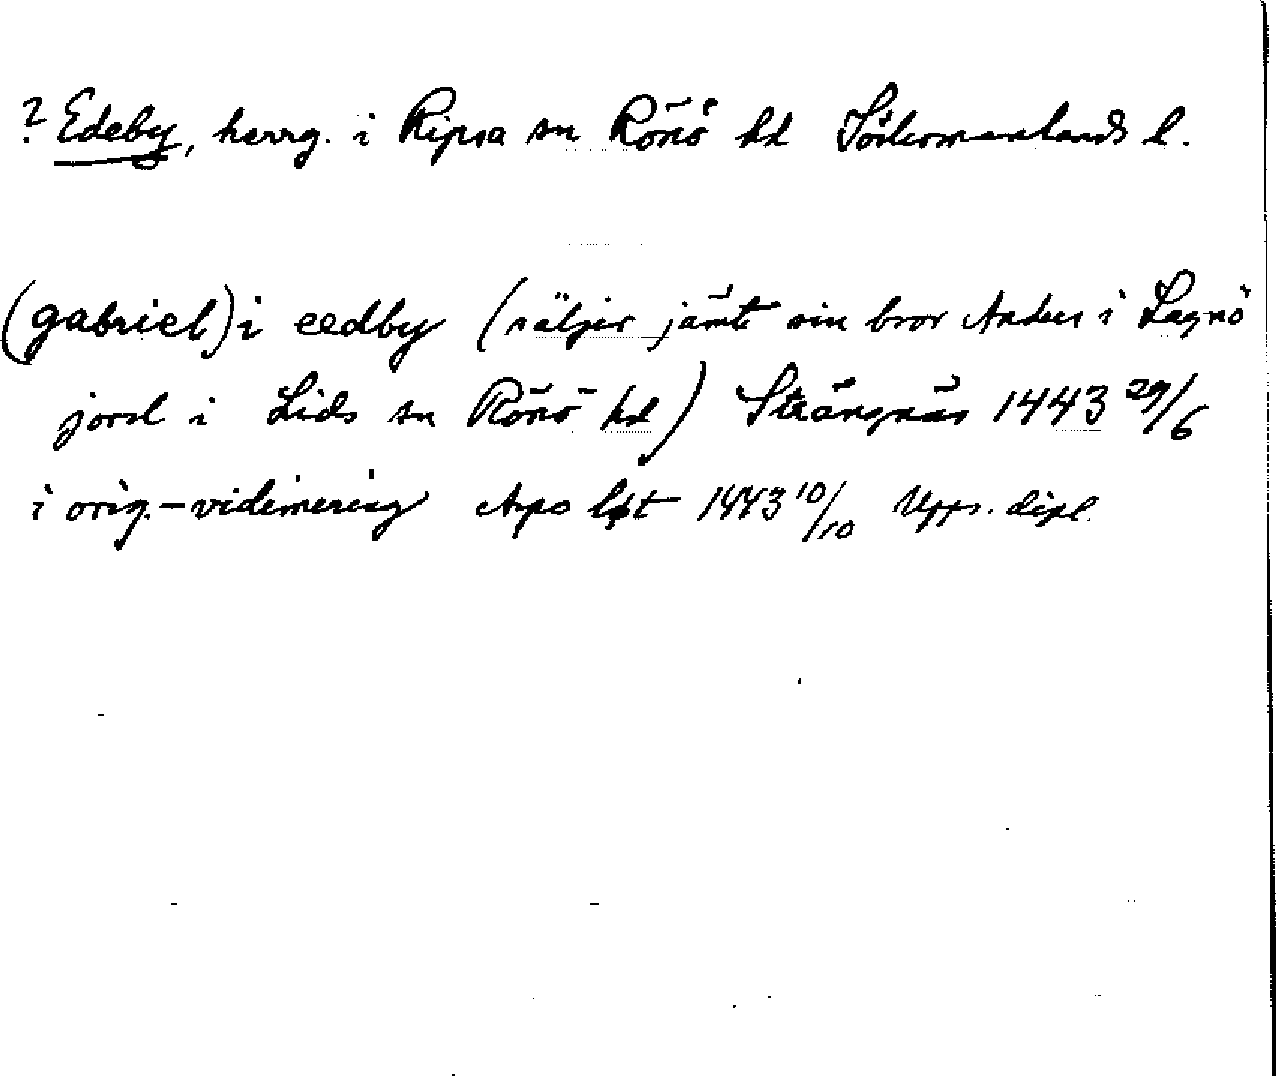 ? Edeby, herrg. i Ripsa sn Rönö hd Södermanlands l.
(gabriel) i eedby (säljer jämte sin bror Anders i Lagnö
jord i Lids sn Rönö hd) Strängnäs 1443 29/6
i orig.-vidimering Aspo 1443 10/10 Upps. dipl.